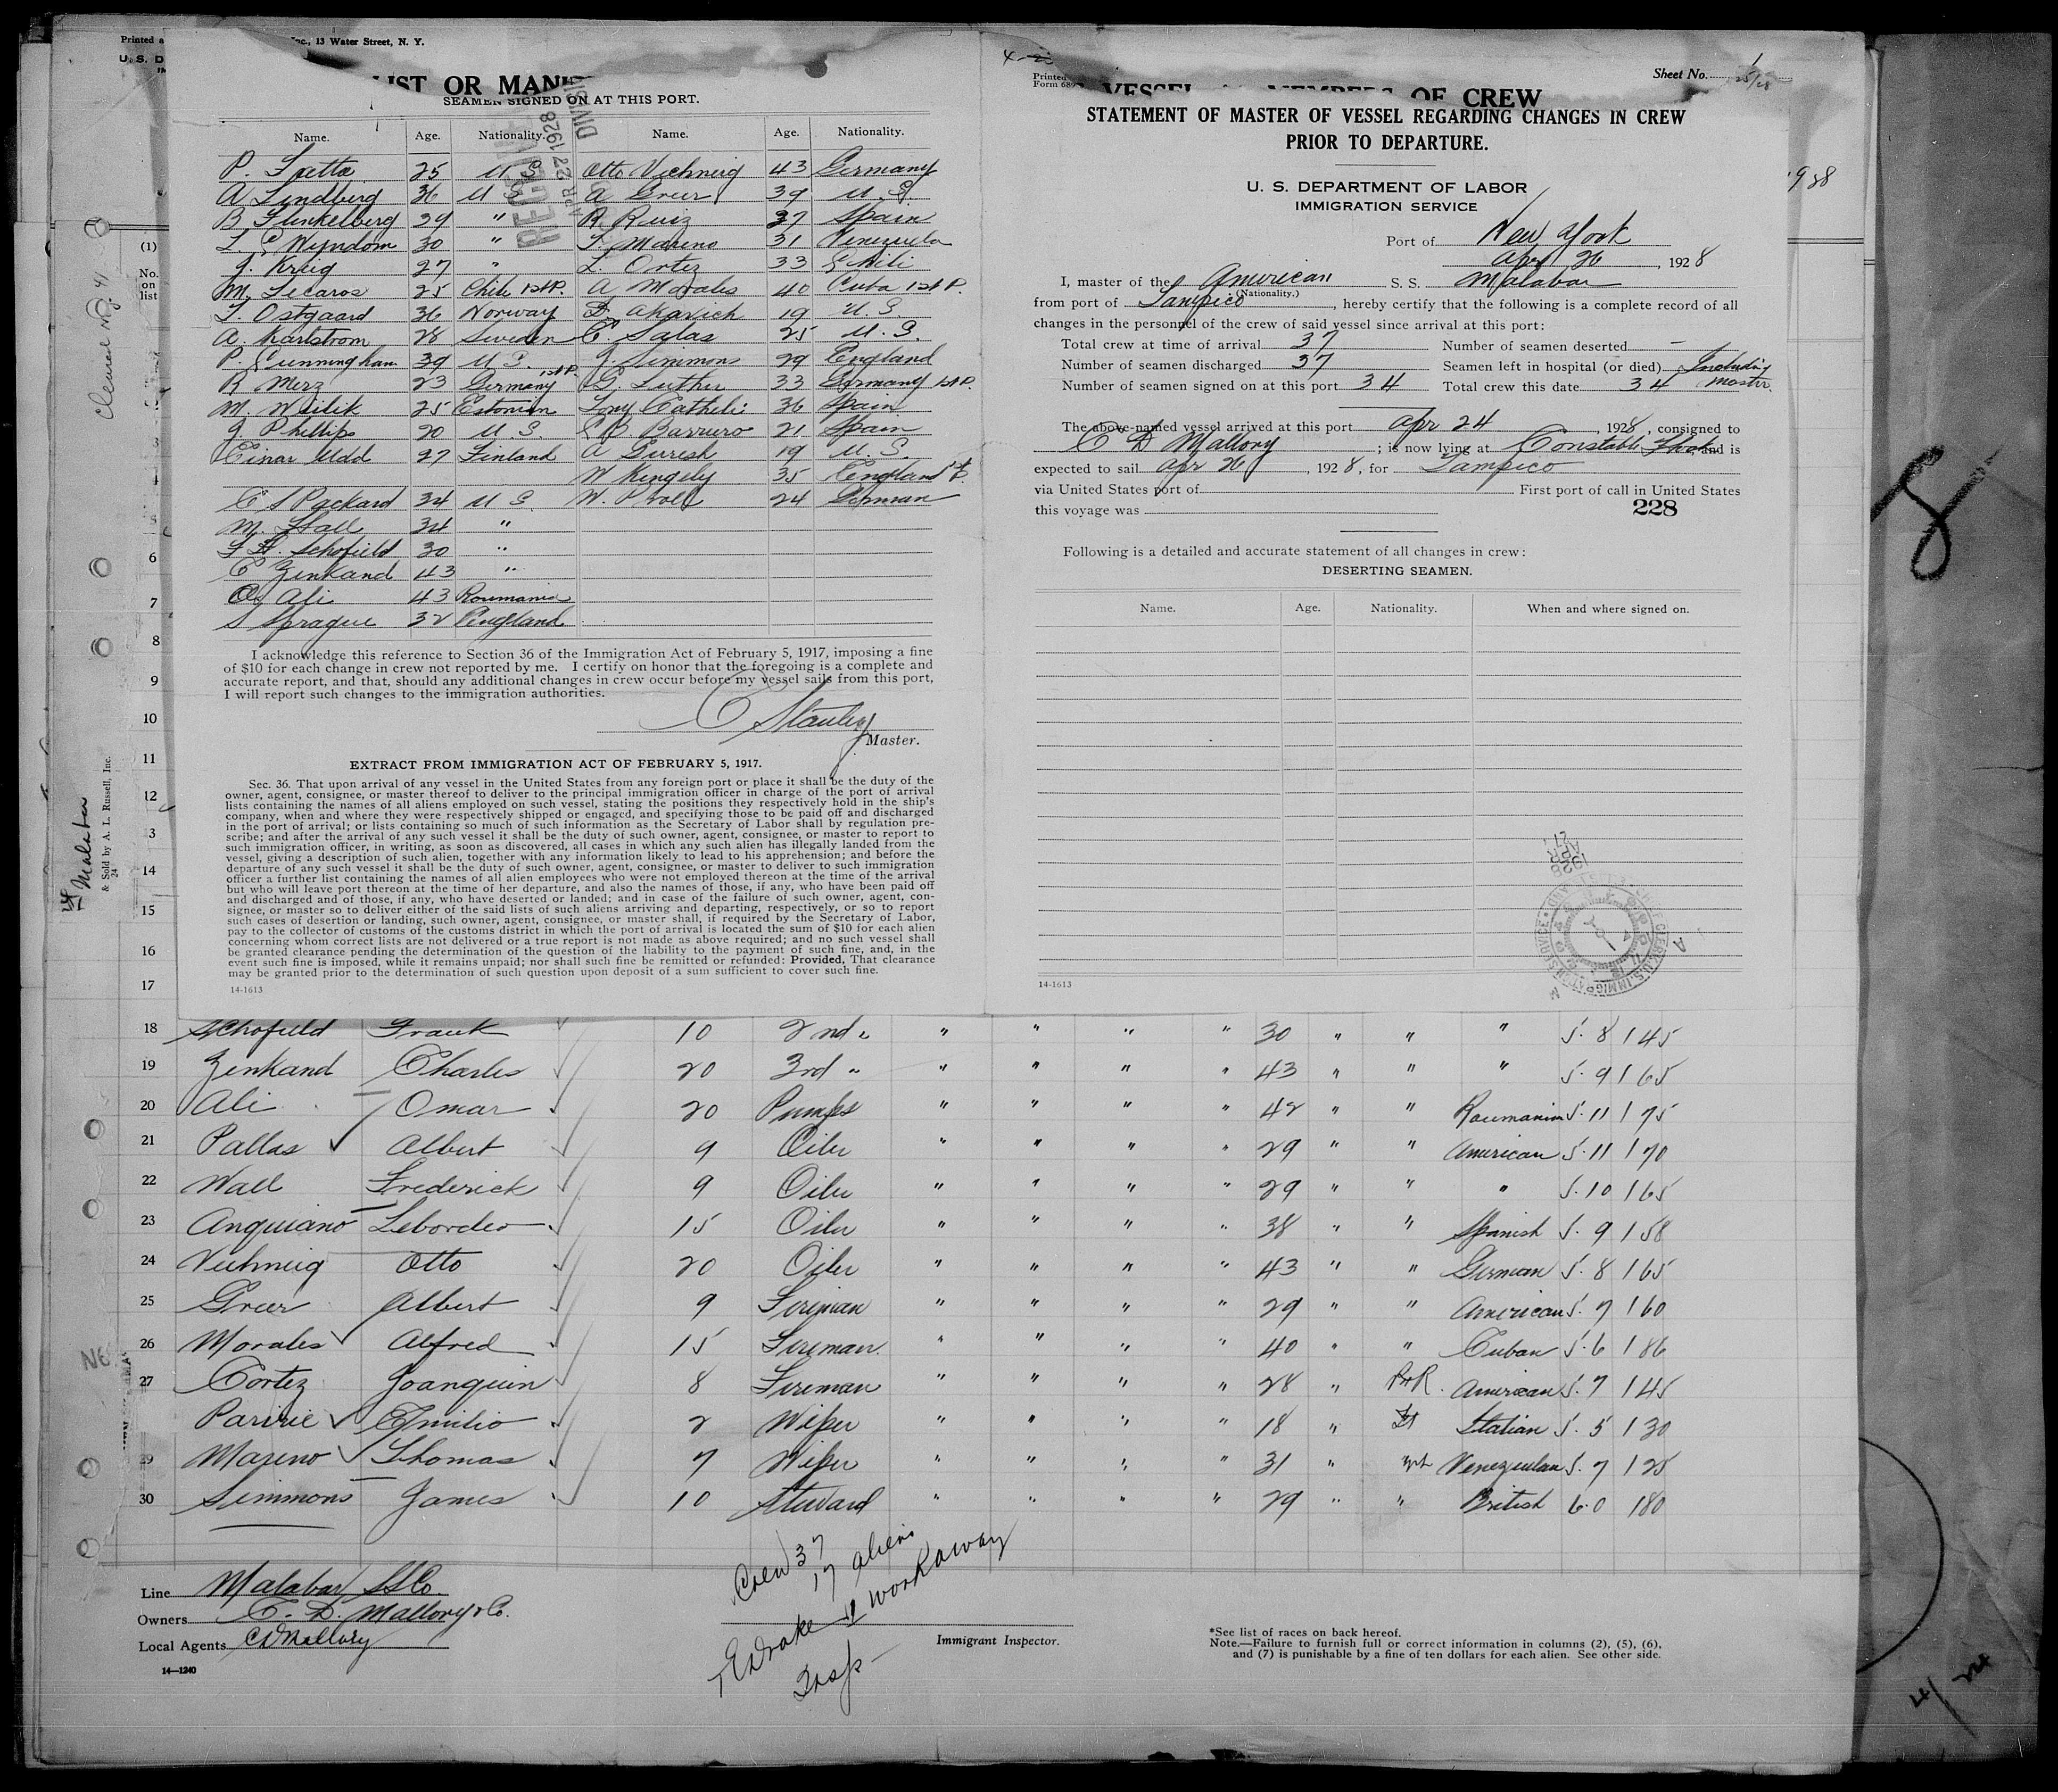 Inc., 13 Water Street, N. Y.
Printed a
U. S. D
LIST OR MANI
SEAMEN SIGNED ON AT THIS PORT.
Name. Age. Nationality. Name. Age. Nationality.
25 U S Otto Viehneig 43 Germany
A Lindberg 36 U S A Greer 39 U. S.
B Finkelberg 29 " R Ruiz 37 Spain
Wyndom 30 " T. Mareno 31 Venezuela
J. Kreig 27 " L. Ortez 33 Chili
M. Lecaros 25 Chile 1st P. A Morales 40 Cuba 1st P.
T. Ostgaard 36 Norway D. Akavich 19 U. S.
A. Karlstrom 28 Sweden C Salas 25 U. S.
P. Cunningham 39 U S. J. Simmons 29 England
R Merz 23 Germany 1st P. G. Luther 33 Germany 1st P.
M. Weilik 25 Estonian Tony Catheli 36 Spain
J. Phillips 20 U. S. Barruro 21 Spain
Einar Udd 27 Finland A 19 U. S.
W Kingely 35 England
C S Packard 34 U S. W. 24 German
M. Hall 34 "
F H. Schofield 30 "
C Zenkand 43 "
O. Ali 43 Roumania
S Sprague 32 England
I acknowledge this reference to Section 36 of the Immigration Act of February 5, 1917, imposing a fine
of $10 for each change in crew not reported by me. I certify on honor that the foregoing is a complete and
accurate report, and that, should any additional changes in crew occur before my vessel sails from this port,
I will report such changes to the immigration authorities.
C Stanley
Master.
EXTRACT FROM IMMIGRATION ACT OF FEBRUARY 5, 1917.
Sec. 36. That upon arrival of any vessel in the United States from any foreign port or place it shall be the duty of the
owner, agent, consignee, or master thereof to deliver to the principal immigration officer in charge of the port of arrival
lists containing the names of all aliens employed on such vessel, stating the positions they respectively hold in the ship's
company, when and where they were respectively shipped or engaged, and specifying those to be paid off and discharged
in the port of arrival; or lists containing so much of such information as the Secretary of Labor shall by regulation pre-
scribe; and after the arrival of any such vessel it shall be the duty of such owner, agent, consignee, or master to report to
such immigration officer, in writing, as soon as discovered, all cases in which any such alien has illegally landed from the
vessel, giving a description of such alien, together with any information likely to lead to his apprehension; and before the
departure of any such vessel it shall be the duty of such owner, agent, consignee, or master to deliver to such immigration
officer a further list containing the names of all alien employees who were not employed thereon at the time of the arrival
but who will leave port thereon at the time of her departure, and also the names of those, if any, who have been paid off
and discharged and of those, if any, who have deserted or landed; and in case of the failure of such owner, agent, con-
signee, or master so to deliver either of the said lists of such aliens arriving and departing, respectively, or so to report
such cases of desertion or landing, such owner, agent, consignee, or master shall, if required by the Secretary of Labor,
pay to the collector of customs of the customs district in which the port of arrival is located the sum of $10 for each alien
concerning whom correct lists are not delivered or a true report is not made as above required; and no such vessel shall
be granted clearance pending the determination of the question of the liability to the payment of such fine, and, in the
event such fine is imposed, while it remains unpaid; nor shall such fine be remitted or refunded: Provided, That clearance
may be granted prior to the determination of such question upon deposit of a sum sufficient to cover such fine.
14-1613
RECEIVED
APR 27 1928
DIVISI
Sheet No. 1
Printed
Form 689
VESSEL MEMBERS OF CREW
STATEMENT OF MASTER OF VESSEL REGARDING CHANGES IN CREW
PRIOR TO DEPARTURE.
U. S. DEPARTMENT OF LABOR
IMMIGRATION SERVICE
Port of New York
Apr 26, 1928
I, master of the American S. S. Malabar
(Nationality.)
from port of Tampico, hereby certify that the following is a complete record of all
changes in the personnel of the crew of said vessel since arrival at this port:
Total crew at time of arrival 37 Number of seamen deserted -
Number of seamen discharged 37 Seamen left in hospital (or died) - Including
Number of seamen signed on at this port 34 Total crew this date 34 Master
The above-named vessel arrived at this port Apr 24, 1928, consigned to
C D Mallory; is now lying at Constable Hook, and is
expected to sail Apr 26, 1928, for Tampico
via United States port of First port of call in United States
this voyage was 228
Following is a detailed and accurate statement of all changes in crew:
DESERTING SEAMEN.
Name. Age. Nationality. When and where signed on.
1928
APR
27
14-1613
(1)
No.
on
list
3
5
6
7
8
9
10
11
12
13
14
15
16
17
SS Malabar
& Sold by A. L. Russell, Inc.
24
18 Schofield Frank 10 2nd " " " " " 30 " " " 5. 8 145
19 Zenkand Charles 20 3rd " " " " " 43 " " " 5. 9 165
20 Ali Omar 20 Pumps " " " " 42 " " Roumanian 5. 11 175
21 Pallas Albert 9 Oiler " " " " 29 " " American 5. 11 170
22 Wall Frederick 9 Oiler " " " " 29 " " " 5. 10 165
23 Anquiano Lebordeo 15 Oiler " " " " 38 " " Spanish 5. 9 158
24 Viehneig Otto 20 Oiler " " " " 43 " " German 5. 8 165
25 Greer Albert 9 Fireman " " " " 29 " " American 5. 7 160
26 Morales Alfred 15 Fireman " " " " 40 " " Cuban 5. 6 186
27 Cortez Joanquin 8 Fireman " " " " 28 " P.R. American 5. 7 145
Paririe Emilio 2 Wiper " " " " 18 " It Italian 5. 5 130
29 Mareno Thomas 7 Wiper " " " " 31 " Venezuelan 5. 7 125
30 Simmons James 10 Steward " " " " 29 " " British 6.0 180
Line Malabar SS Co.
Owners C. D. Mallory & Co.
Local Agents C D Mallory
14—1240
Crew 37
17 aliens
1 workaway
Drake
Insp
Immigrant Inspector.
*See list of races on back hereof.
Note.—Failure to furnish full or correct information in columns (2), (5), (6),
and (7) is punishable by a fine of ten dollars for each alien. See other side.
8
4/24